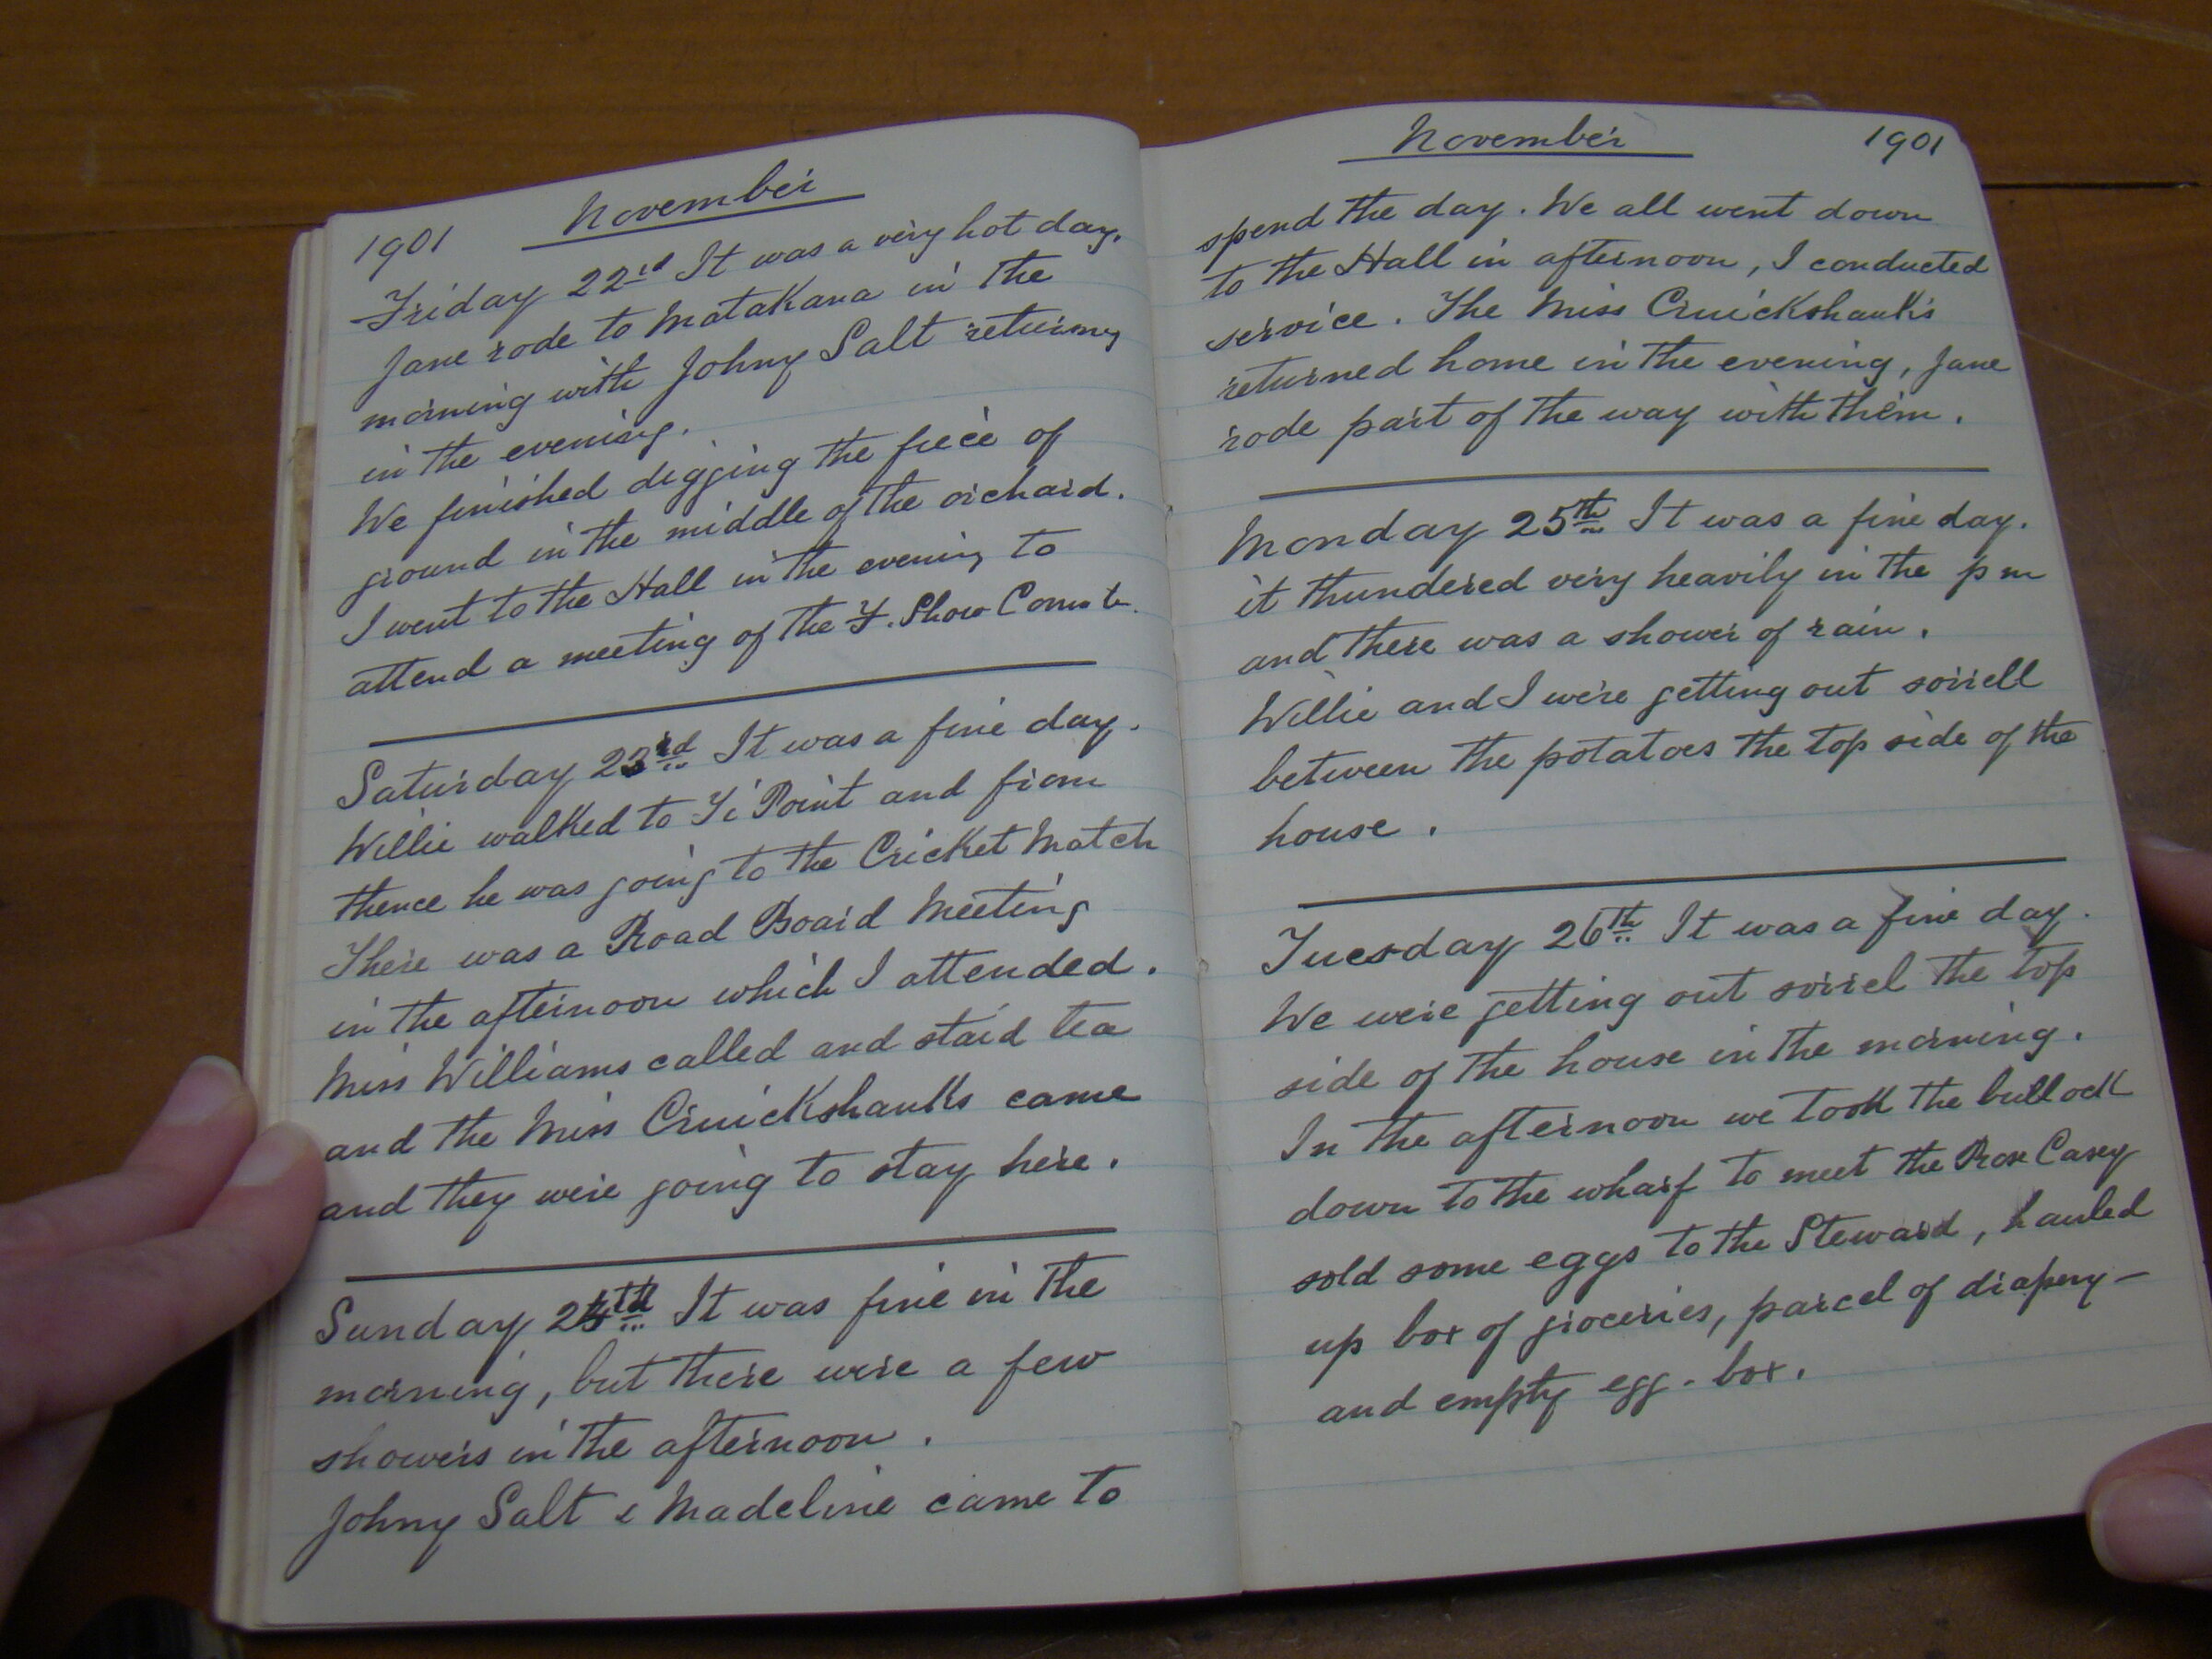 1901 November
Friday 22rd It was a very hot day.
Jane rode to Matakana in the
morning with Johny Salt returning
in the evening.
We finished digging the piece of
ground in the middle of the orchard.
I went to the Hall in the evening to
attend a meeting of the F. Show Comte.
Saturday 23rd It was a fine day.
Willie walked to Ti Point and from
thence he was going to the Cricket Match
There was a Road Board Meeting
in the afternoon which I attended.
Miss Williams called and staid tea
and the Miss Cruickshanks came
and they were going to stay here.
Sunday 24th It was fine in the
morning, but there were a few
showers in the afternoon.
Johny Salt & Madeline came to
November 1901
spend the day. We all went down
to the Hall in afternoon, I conducted
service. The Miss Cruickshanks
returned home in the evening, Jane
rode part of the way with them.
Monday 25th It was a fine day.
it thundered very heavily in the pm
and there was a shower of rain.
Willie and I were getting out sorrell
between the potatoes the top side of the
house.
Tuesday 26th It was a fine day.
We were getting out sorrel the top
side of the house in the morning.
In the afternoon we took the bullock
down to the wharf to meet the Rose Casey
sold some eggs to the Steward, hauled
up box of groceries, parcel of drapery -
and empty egg-box.